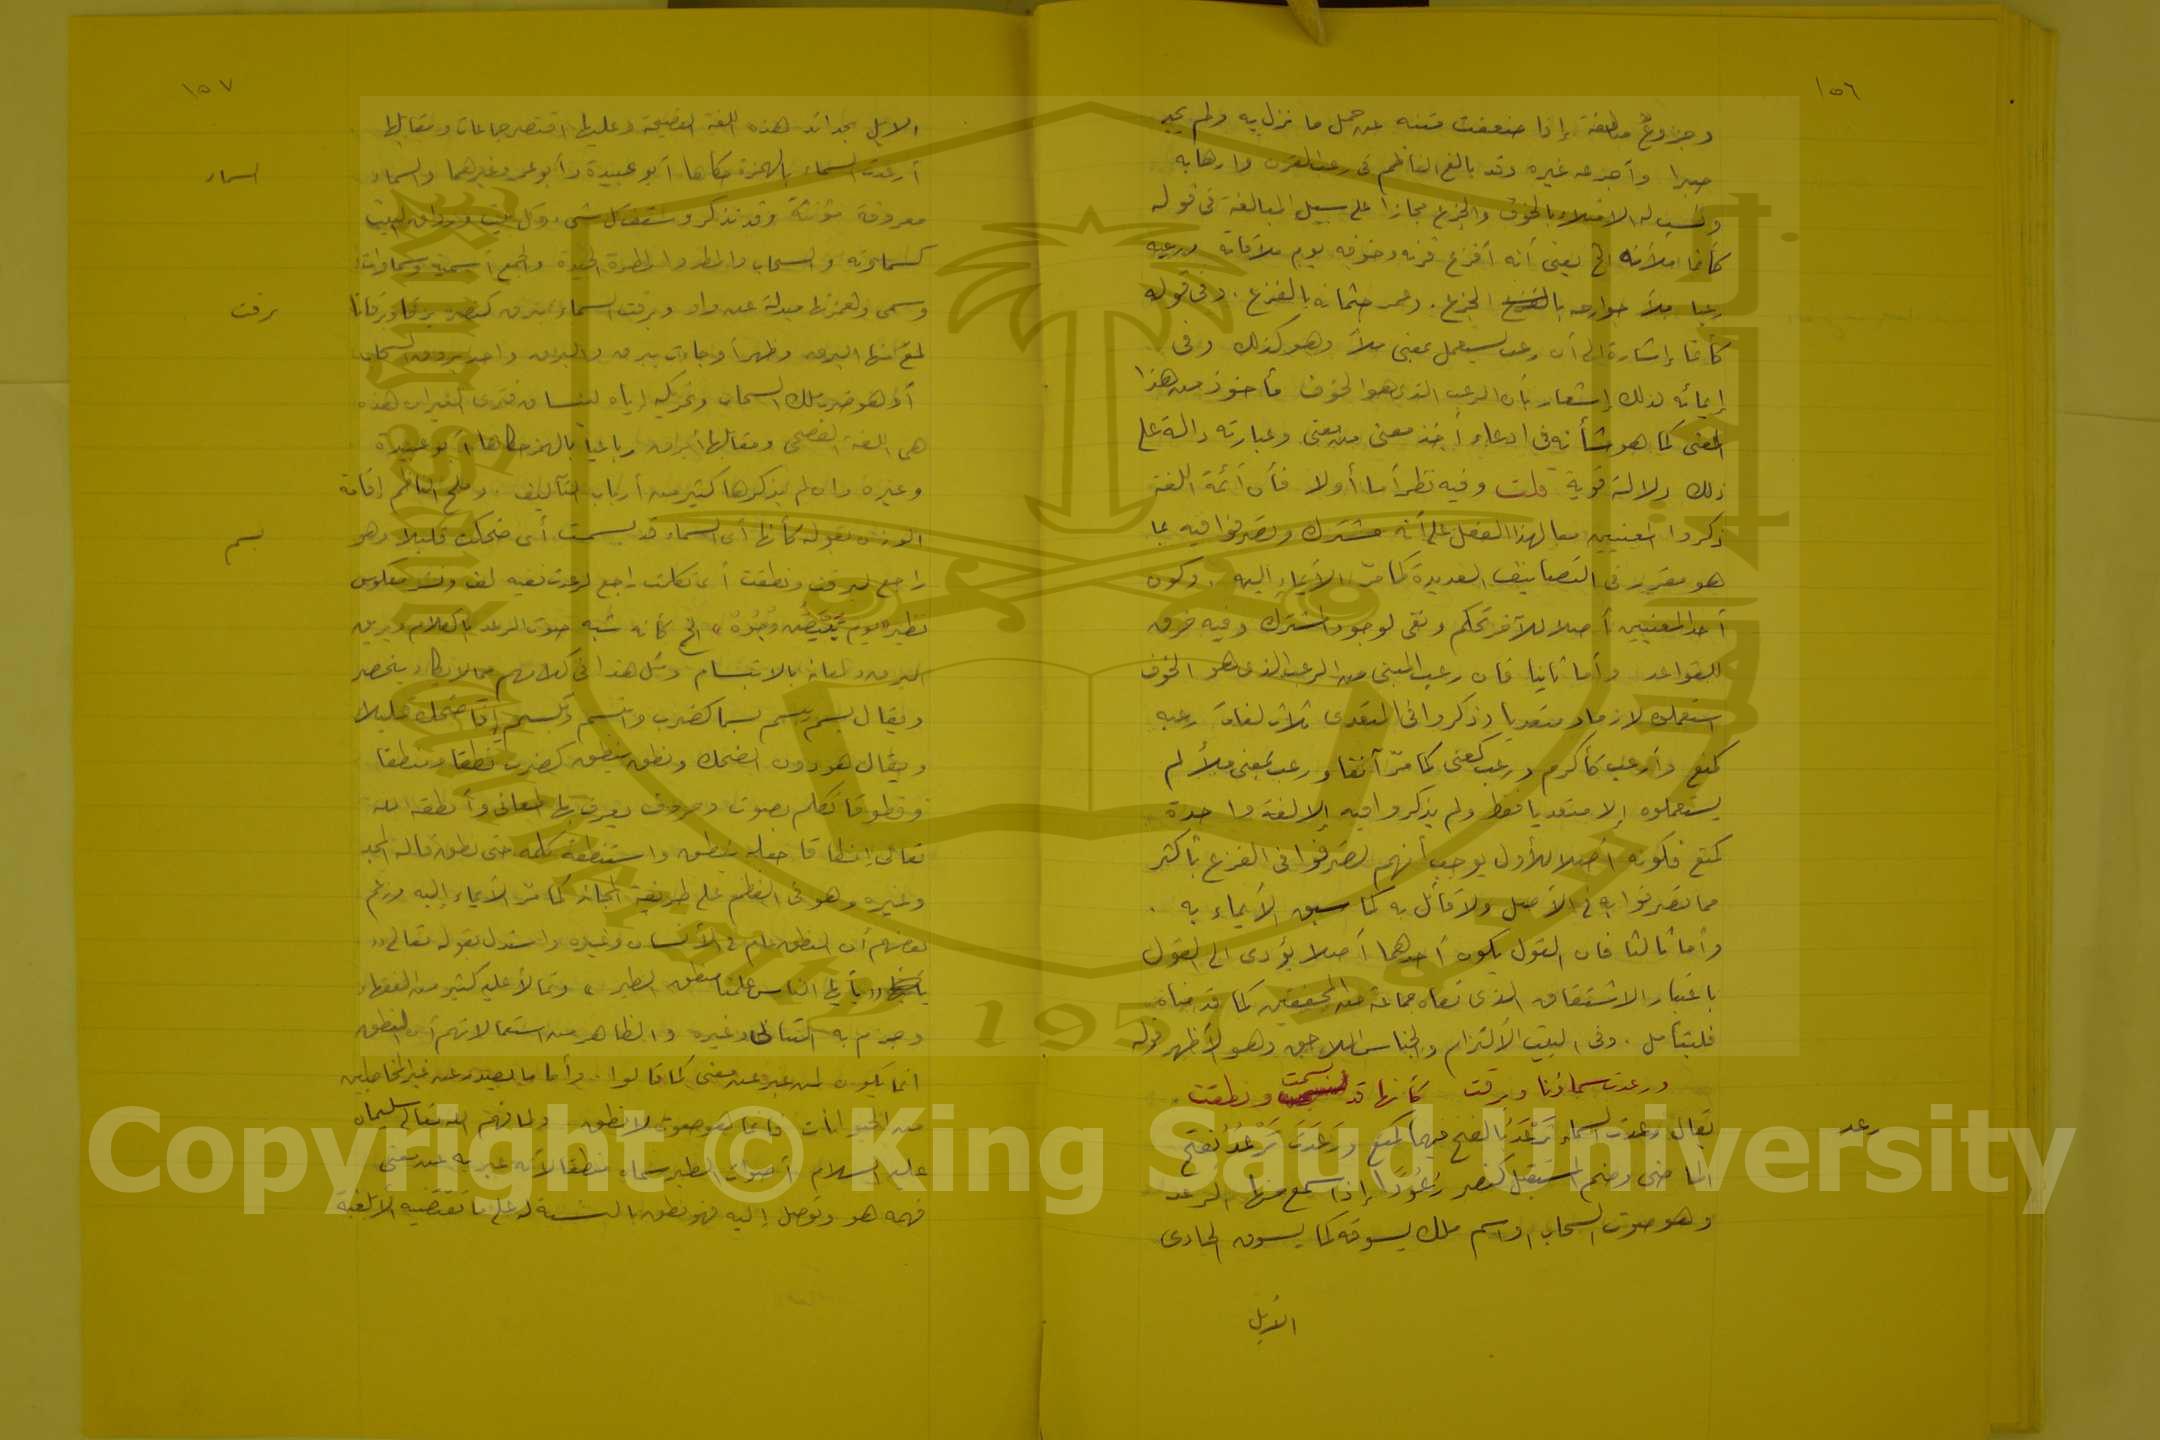 ١٥٦
وجزوع مبالغة إذا ضعفت متنه عن حمل ما نزل به ولم يجد
صبرا وأجزعه غيره وقد بالغ الناظم في رعب القرن وإرهابه
ونسب له الامتلاء بالخوف والجزع مجازا على سبيل المبالغة في قوله
كأنما ملأته الخ يعني أنه أفزع قرنه وخوفه يوم ملاقاته ورعبه
رعبا ملأ جوارحه بالجزع. وعمر جثمانه بالفزع. وفي قوله
كأنما إشارة إلى أن رعب يستعمل بمعنى ملأ وهو كذلك وفي
إيمائه لذلك إشعار بأن الرعب الذي هو الخوف مأخوذ من هذا
المعنى كما هو شأنه في ادعاء أخذ معنى من معنى وعبارته دالة على
ذلك دلالة قوية قلت وفيه نظر أما أولا فأن أئمة اللغة
ذكروا المعنيين معا لهذا الفعل على أنه مشترك وتصرفوا فيه بما
هو مقرر في التصانيف العديدة كما مرّ الأيماء إليه. وكون
أحد المعنيين أصلا للآخر تحكم ونفى لوجود المشترك وفيه خرق
للقواعد وأما ثانيا فان رعب المبنى من الرعب الذي هو الخوف
استعملوه لازما ومتعديا وذكروا في المتعدى ثلاث لغات رعبه
كمنع وأرعب كأكرم ورعب كعنى كما مرّ آنفا ورعب بمعنى ملأ لم
يستعملوه إلا متعديا فقط ولم يذكروا فيه إلا لغة واحدة
كمنع فكونه أصلا للأول يوجب أنهم تصرفوا في الفرع بأكثر
مما تصرفوا به في الأصل ولا قائل به كما سبق الأيماء به.
وأما ثالثا فان القول بكون أحدهما أصلا يؤدى الى القول
باعتبار الاشتقاق الذي نفاه جماعة من المحققين كما قدمناه
فليتأمل. وفى البيت الألتزام والجناس اللاحق وهو الأظهر قوله
ورعدت سماؤنا وبرقت كأنها قد بسمت ونطقت.
رعد
يقال رعدت السماء تَرْعَدُ بالفتح فيهما كمنع ورَعَدَت تَرْعُدُ بفتح
الماضى وضم المستقبل كنصر رُعُودًا إذا سمع منها الرعد
وهو صوت السحاب او اسم ملك يسوقه كما يسوق الحادى
الأبل
١٥٧
الابل بحدائه هذه اللغة الفصيحة وعليها اقتصر جماعات ومقابلها
السماء
أرعدت السماء بالهمزة حكاها أبو عبيدة وأبو عمرو وغيرهما والسماء
معروفة مؤنثة وقد تذكر وسقف كل شئ وكل بيت ورواق البيت
كسماوته والسحاب والمطر والمطرة الجيدة والجمع أسمية وسماوات
برقت
وسمى وهمزتها مبدلة عن واو وبرقت السماء تبرق كنصر برقا وبرقانا
لمع منها البرق وظهر أو جاءت ببرق والبرق واحد بروق السحاب
أو هو ضرب ملك السحاب وتحريكه إياه لينساق فترى النيران هذه
هي اللغة الفصحى ومقابلها أبرق رباعيا بالهمز حكاها أبو عبيدة
وغيره وان لم يذكرها كثير من أرباب التآليف. وملح الناظم إقامة
بسم
الوزن بقوله كأنها أى السماء قد بسمت أى ضحكت قليلا وهو
راجع لبرقت ونطقت أى تكلمت راجع لرعدت ففيه لف ونشر معكوس
نظير «يوم تَبْيَضُّ وُجُوهٌ» الخ كأنه شبه صوت الرعد بالكلام وبريق
البرق ولمعانه بالابتسام ومثل هذا في كلامهم مما لا يكاد ينحصر
ويقال بسم يبسم بسما كضرب وابتسم وتبسم إذا ضحك قليلا
ويقال هو دون الضحك ونطق ينطق كضرب نطقا ومنطقا
ونطوقا تكلم بصوت وحروف يعرف بها المعانى وأنطقه الله
تعالى إنطاقا جعله ينطق واستنطقه كلمه حتى نطق قاله المجد
وغيره وهو في النظم على طريقة المجاز كما مرّ الأيماء إليه وزعم
بعضهم أن النطق عام في الأنسان وغيره واستدل بقوله تعالى
«يأيها الناس علمنا منطق الطير» وتمالأ عليه كثير من الفقهاء
وجزم به التتائى وغيره والظاهر من استعمالاتهم أن النطق
انما يكون لمن عبر عن معنى كما قالوا. وأما ما يصدر عن غير المخاطبين
من الحيوانات فانما هو صوت لا نطق ولما فهم الله تعالى سليمان
عليه السلام أصوات الطير سماه منطقا لأنه عبر به عن معنى
فهمه هو وتوصل إليه فهو نطق بالنسبة له على ما تقتضيه الأبلغية
Copyright © King Saud University
1957